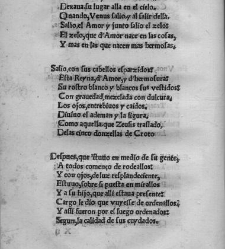 Dexana, su lugar alla en el cielo.
Quando, Venus salio, y al salir della,
Salio, el Amor y junto salio el zelo:
El zelo, que d'Amor nace en las cosas,
Y mas en las que nacen mas hermosas.
Salio, con sus cabellos esparzidos:
Esta Reyna, d'Amor, y d'hermosura:
Su rostro blanco y blancos sus vestidos:
Con gravedad, mezclada con dulçura,
Los ojos, entrebaxos y caidos:
Divino el ademan y la figura,
Como aquella: que Zeusis traslado,
Delas cinco donzellas de Croto
Despues, que stuuo en medio de su gente;
A todos començo de rodeallos:
Y con ojos, de luz resplandesciente,
Estuuo, sobre si puesta en mirallos
Y a su hijo, que alli estaua presente:
Cargo le dio que vuyesse de ordenallos:
Y assi fueron por el luego ordenados:
Segun, la calidad de sus cuydados.